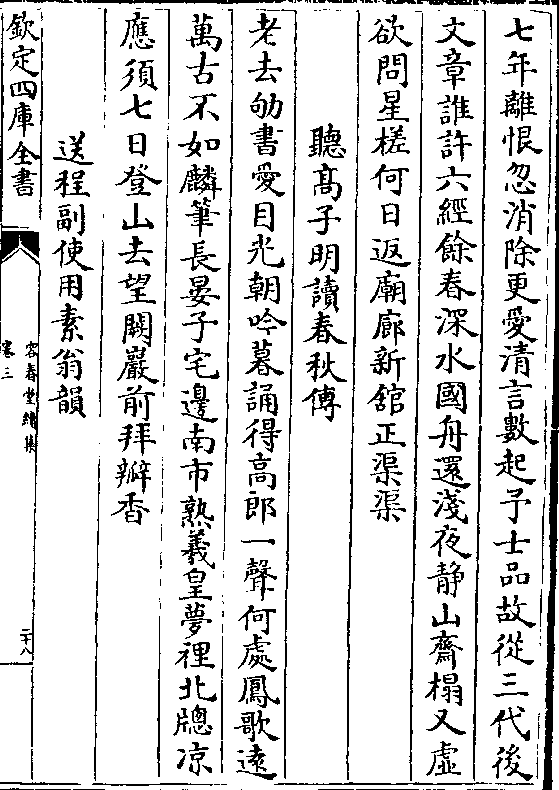 七年離恨忽消除更愛清言數起予士品故從三代後
文章誰許六經餘春深水國舟還淺夜静山齋榻又虚
欲問星槎何日返廟廊新舘正渠渠
聽髙子明讀春秋傳
老去劬書愛目光朝吟暮誦得高郎一聲何處鳳歌逺
萬古不如麟筆長晏子宅邊南市熟羲皇夢裡北牕凉
應須七日登山去望闕巖前拜瓣香
送程副使用素翁韻
欽定四庫全書
容春堂續集
卷三
二十八